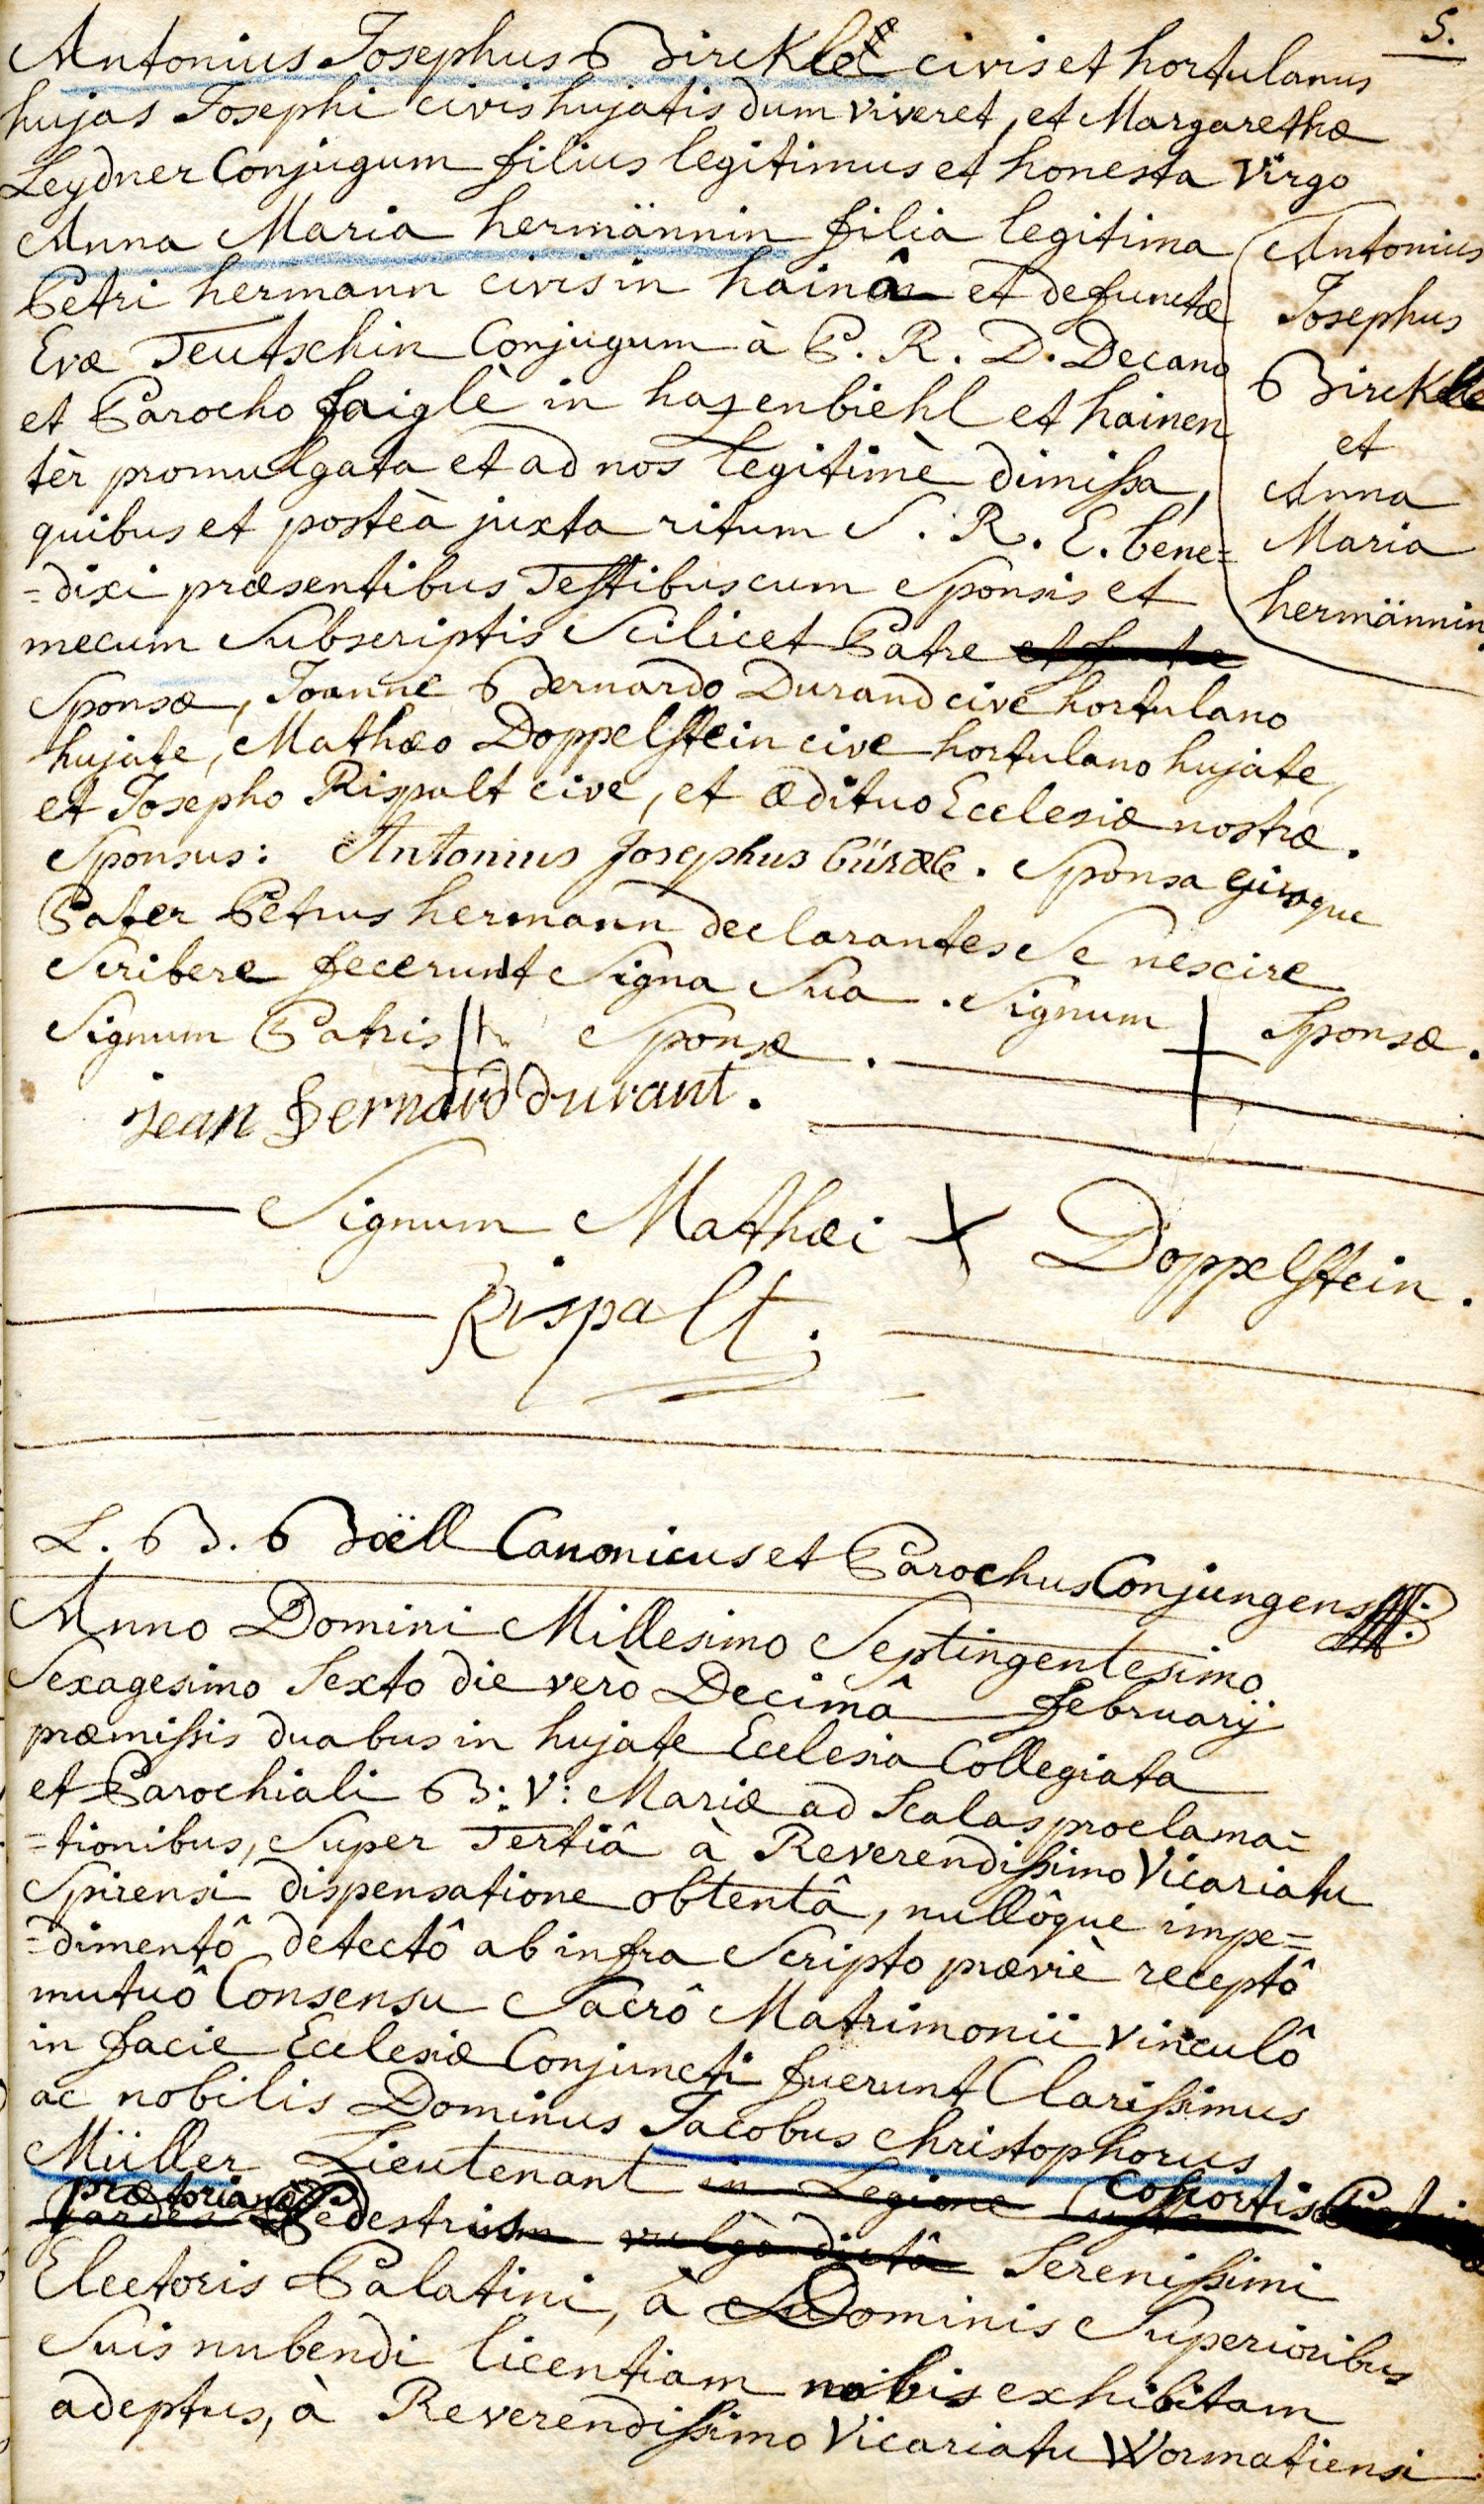 5.
Antonius Josephus Birckle civis et hortulanus
hujas Josephi civis hujatis dum viveret, et Margarethæ
Leydner Conjugum filius legitimus et honesta virgo
Anna Maria hermännin filia legitima
Petri hermann civis in hainâ et defunctæ
Evæ Teutschin Conjugum à P. R. D. Decano
et Parocho faiglè in hazenbiehl et hainen
tèr promulgata et ad nos legitimè dimissa,
quibus et posteà juxta ritum S. R. E. bene=
=dixi præsentibus Testibus cum Sponsis et
mecum Subscriptis Scilicet Patre
Sponsæ, Joanne Bernardo Durand cive hortulano
hujate, Mathæo Doppelstein cive hortulano hujate,
et Josepho Rispalt cive, et ædituo Ecclesiæ nostræ.
Sponsus: Antonius Josephus bürcle. Sponsa ejusque
Pater Petrus hermann declarantes Se nescire
Scribere fecerunt Signa Sua. Signum + Sponsæ.
Signum Patris Sponsæ.
jean Bernard durant.
Signum Mathæi X Doppelstein.
Rispalt.
Antonius
Josephus
Birckle
et
Anna
Maria
hermännin.
L. B. Boëll Canonicus et Parochus Conjungens
Anno Domini Millesimo Septingentesimo
Sexagesimo Sexto die verò Decimâ februarij
præmissis duabus in hujate Ecclesia Collegiata
et Parochiali B: V: Mariæ ad Scalas proclama=
=tionibus, Super Tertiâ à Reverendissimo Vicariatu
Spirensi dispensatione obtentâ, nullôque impe=
=dimentô detectô ab infra Scripto præviè receptô
mutuô Consensu Sacrô Matrimonii vinculô
in facie Ecclesiæ Conjuncti fuerunt Clarissimus
ac nobilis Dominus Jacobus christophorus
Müller Lieutenant in Legione Cohortis
prætorianæ Pedestris vulgò dictâ Serenissimi
Electoris Palatini, à Dominis Superioribus
Suis nubendi licentiam nobis exhibitam
adeptus, à Reverendissimo Vicariatu Wormatiensi